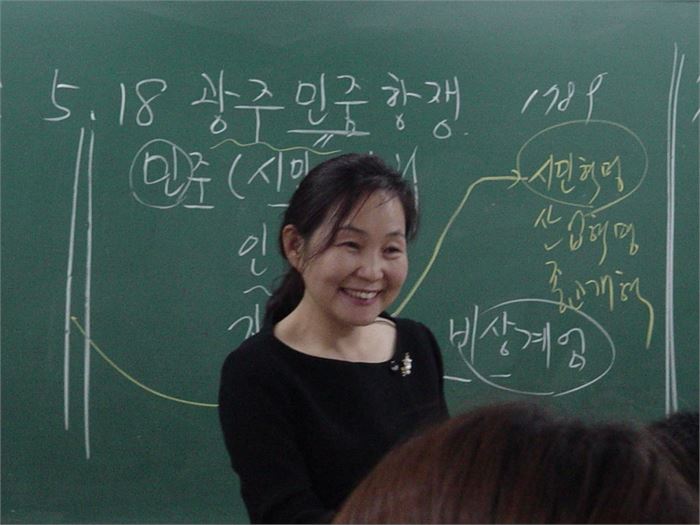 5.18 광주 민중 항쟁.
1789
민주 (시민
시민혁명
인
산업혁명
종교개혁
비상계엄